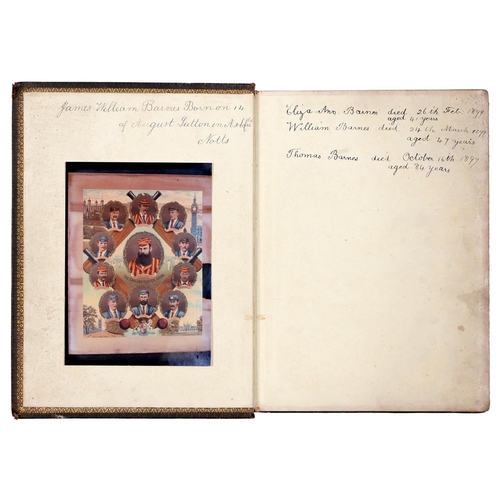 James William Barnes Born on 14
of August Sutton in Ashfd
Notts
Eliza Ann. Barnes died 26th Feb. 1899
aged 41 years
William Barnes died 24th March
aged 47 years
Thomas Barnes died October 16th 1897
aged 84 years